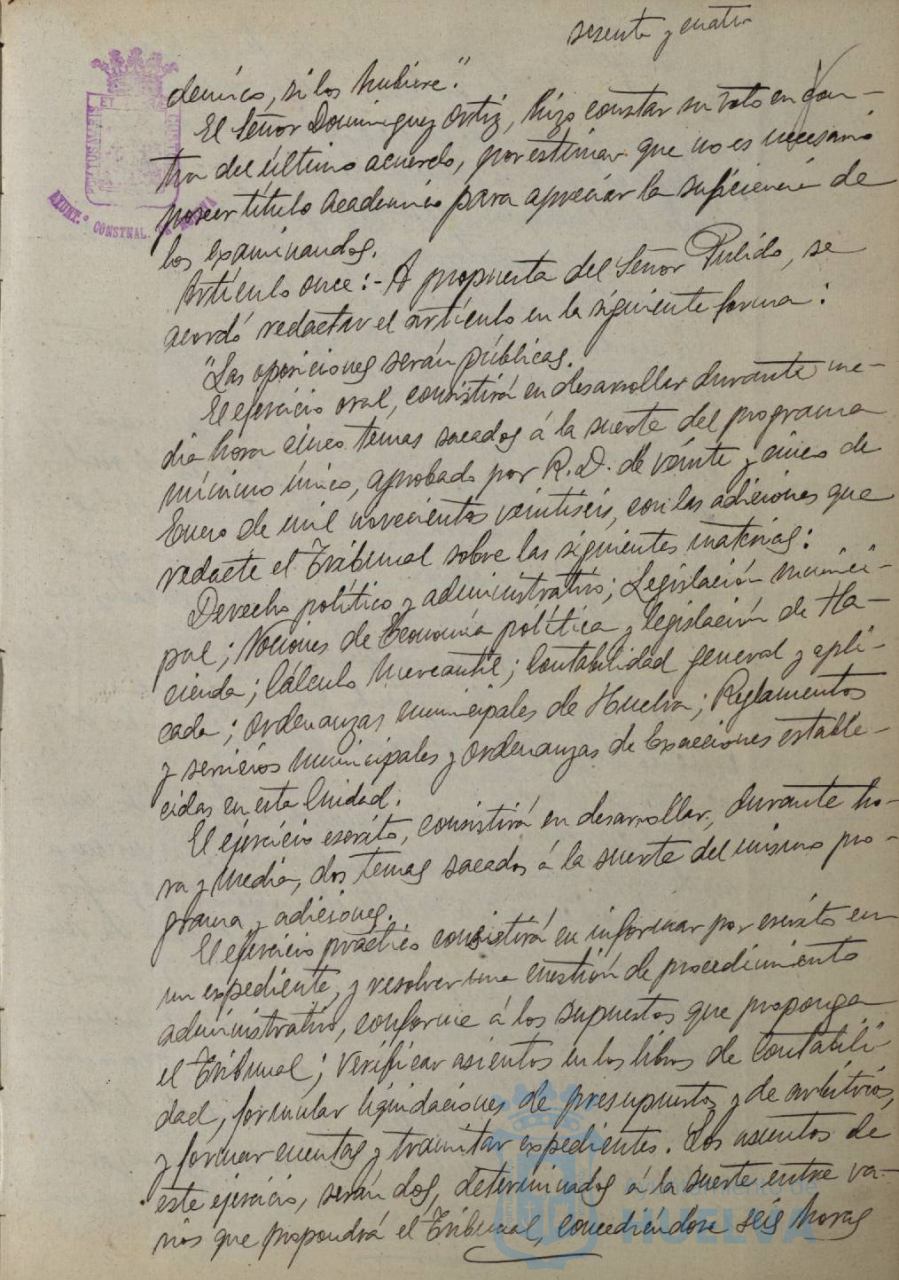 sesenta y cuatro
démico, si los hubiere."
El Señor Dominguez Ortiz, hizo constar su voto en con-
tra del último acuerdo, por estimar que no es necesario
poseer título Académico para apreciar la suficiencia de
los examinandos.
Artículo once:- A propuesta del Señor Pulido, se
acordó redactar el artículo en la siguiente forma:
"Las oposiciones serán públicas.
El ejercicio oral, consistirá en desarrollar durante me-
dia hora cinco temas sacados á la suerte del programa
mínimo único, aprobado por R. D. de veinte y cinco de
Enero de mil novecientos veintiseis, con las adiciones que
redacte el Tribunal sobre las siguientes materias:
Derecho político y administrativo; Legislación munici-
pal; Nociones de Economía política y legislación de Ha-
cienda; Cálculo Mercantil; Contabilidad general y apli-
cada; Ordenanzas municipales de Huelva; Reglamentos
y servicios municipales y Ordenanzas de Exacciones estable-
cidas en esta Ciudad.
El ejercicio escrito, consistirá en desarrollar, durante ho-
ra y media, dos temas sacados á la suerte del mismo pro-
grama y adiciones.
El ejercicio práctico consistirá en informar por escrito en
un expediente, y resolver una cuestión de procedimiento
administrativo, conforme á los supuestos que proponga
el Tribunal; verificar asientos en los libros de Contabili-
dad, formular liquidaciones de presupuestos y de arbitrios,
y formar cuentas y tramitar expedientes. Los asuntos de
este ejercicio, serán dos, determinados á la suerte entre va-
rios que propondrá el Tribunal, concediéndose seis horas
AYUNT.º CONSTNAL. DE HUELVA
Ayuntamiento de
HUELVA